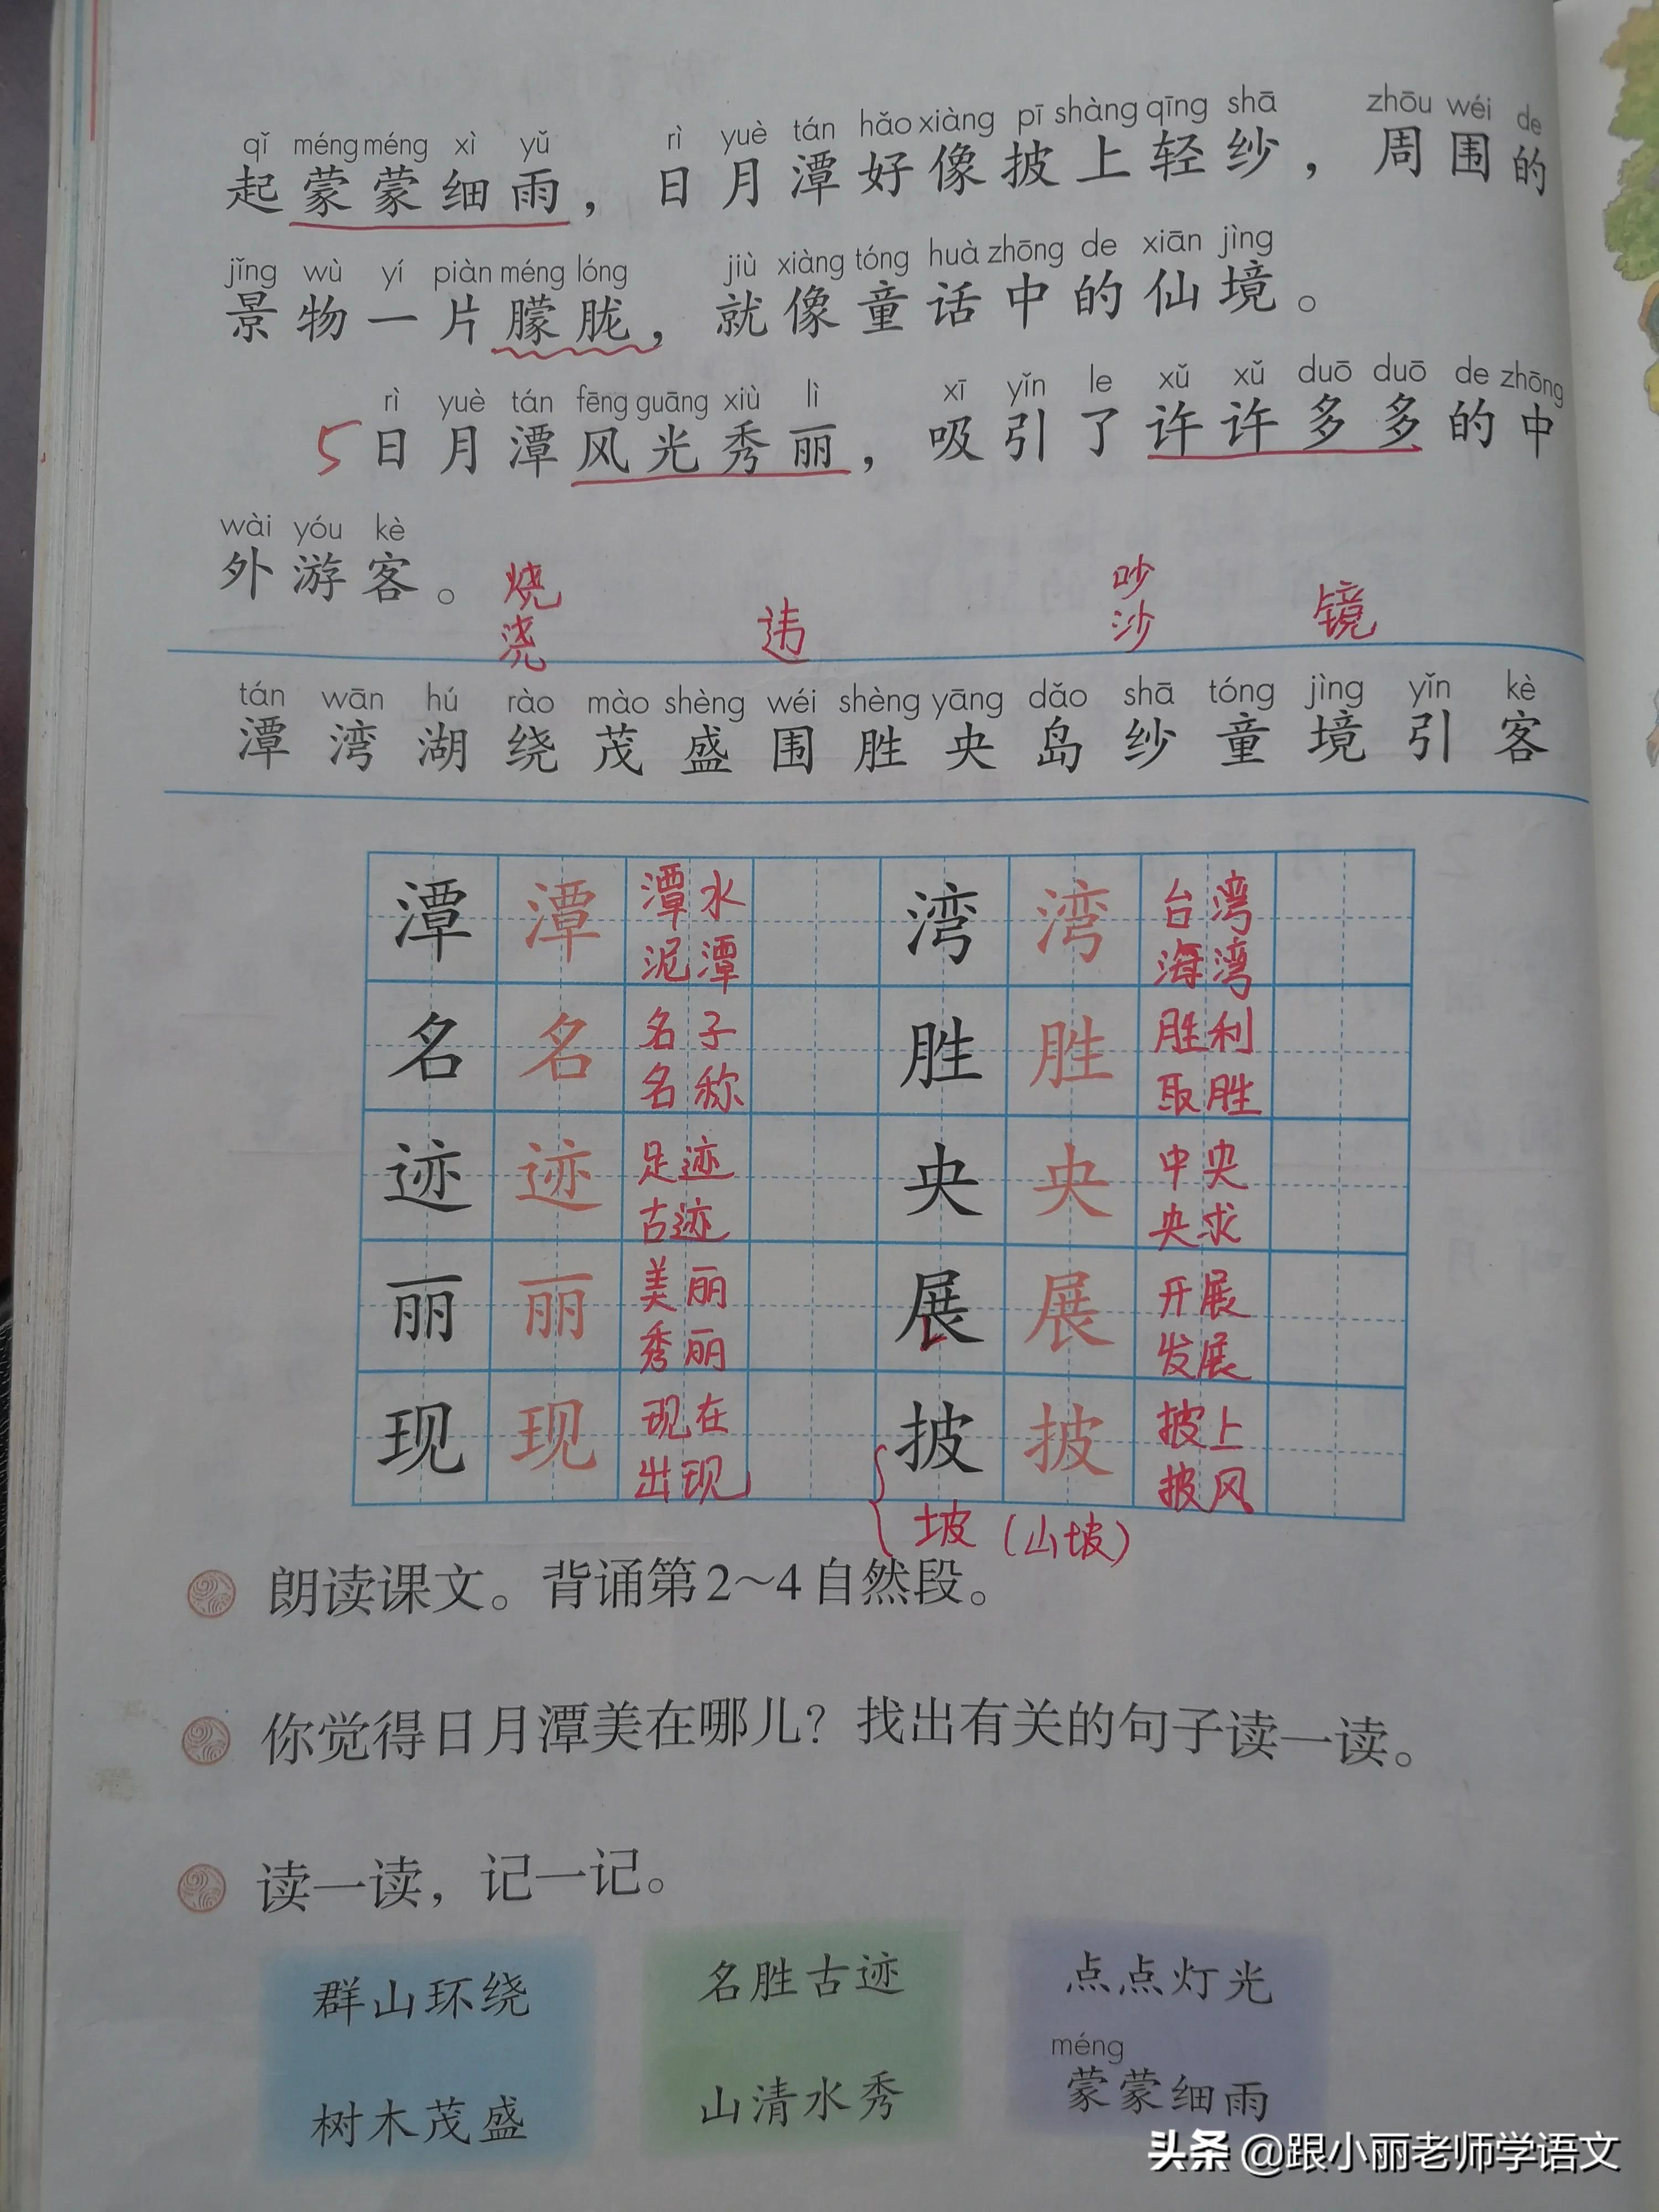 qǐ méng méng xì yǔ rì yuè tán hǎo xiàng pī shàng qīng shā zhōu wéi de
起蒙蒙细雨，日月潭好像披上轻纱，周围的
jǐng wù yí piàn méng lóng jiù xiàng tóng huà zhōng de xiān jìng
景物一片朦胧，就像童话中的仙境。
rì yuè tán fēng guāng xiù lì xī yǐn le xǔ xǔ duō duō de zhōng
5日月潭风光秀丽，吸引了许许多多的中
wài yóu kè
外游客。
烧 吵
浇 违 沙 镜
tán wān hú rào mào shèng wéi shèng yāng dǎo shā tóng jìng yǐn kè
潭 湾 湖 绕 茂 盛 围 胜 央 岛 纱 童 境 引 客
潭 潭 潭水 湾 湾 台湾
泥潭 海湾
名 名 名子 胜 胜 胜利
名称 取胜
迹 迹 足迹 央 央 中央
古迹 央求
丽 丽 美丽 展 展 开展
秀丽 发展
现 现 现在 披 披 披上
出现 披风
坡（山坡）
朗读课文。背诵第2～4自然段。
你觉得日月潭美在哪儿？找出有关的句子读一读。
读一读，记一记。
群山环绕 名胜古迹 点点灯光
méng
树木茂盛 山清水秀 蒙蒙细雨
头条 @跟小丽老师学语文